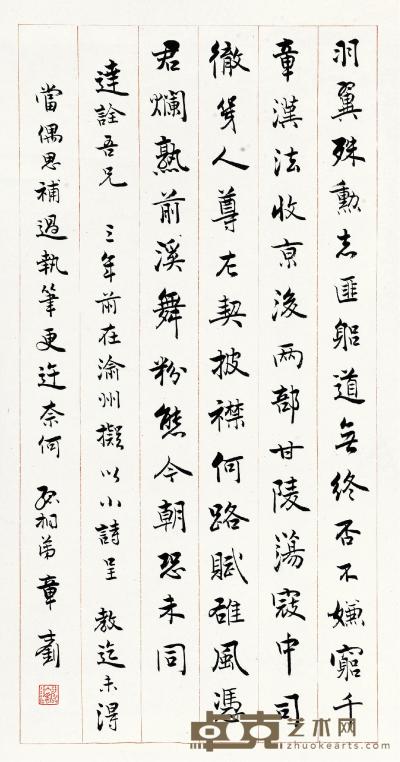 羽翼殊勳志匪躬道無終否不嫌窮千
章漢法收京後两部甘陵蕩寇中司
徹幾人尊左契披襟何路賦雄風憑
君爛熟前溪舞粉態今朝恐未同
達詮吾兄 三年前在渝州擬以小詩呈 教迄未得
當偶思補過執筆更迕奈何 孤桐弟章士釗
卓克艺术网
zhuokearts.com